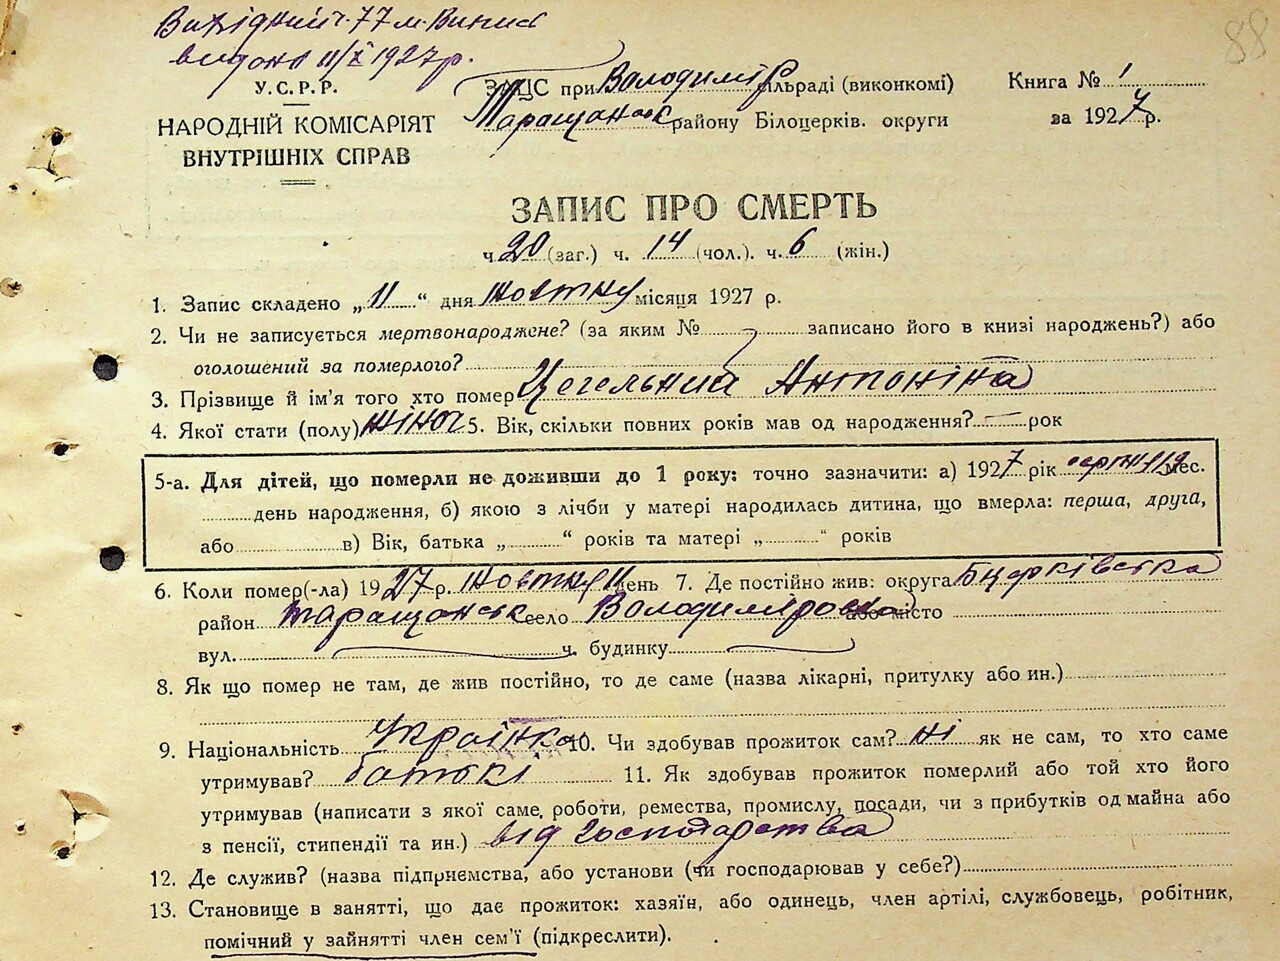 Вихідний ч. 77 м. Випис
видано 11/X 1927 р.
88
У.С.Р.Р.
НАРОДНІЙ КОМІСАРІЯТ
ВНУТРІШНІХ СПРАВ
ЗАГС при Володимір сільраді (виконкомі)
Таращанськ району Білоцерків. округи
Книга № 1
за 1927 р.
ЗАПИС ПРО СМЕРТЬ
ч. 20 (заг.) ч. 14 (чол.). ч. 6 (жін.)
1. Запис складено „11“ дня жовтня місяця 1927 р.
2. Чи не записується мертвонароджене? (за яким № записано його в книзі народжень?) або
оголошений за померлого?
3. Прізвище й ім'я того хто помер Цегельний Антоніна
4. Якої стати (полу) жіноч 5. Вік, скільки повних років мав од народження? — рок
5-а. Для дітей, що померли не доживши до 1 року: точно зазначити: а) 1927 рік мес.
день народження, б) якою з лічби у матері народилась дитина, що вмерла: перша, друга,
або в) Вік, батька „ “ років та матері „ “ років
6. Коли помер(-ла) 1927 р. жовтня 11 день 7. Де постійно жив: округа Бцерківська
район Таращанськ село Володиміровка або місто
вул. ч. будинку
8. Як що помер не там, де жив постійно, то де саме (назва лікарні, притулку або ин.)
9. Національність Українка 10. Чи здобував прожиток сам? ні як не сам, то хто саме
утримував? батькі 11. Як здобував прожиток померлий або той хто його
утримував (написати з якої саме роботи, ремества, промислу, посади, чи з прибутків од майна або
з пенсії, стипендії та ин.) від господарства
12. Де служив? (назва підприємства, або установи (чи господарював у себе?)
13. Становище в занятті, що дає прожиток: хазяїн, або одинець, член артілі, службовець, робітник,
помічний у зайнятті член сем'ї (підкреслити).